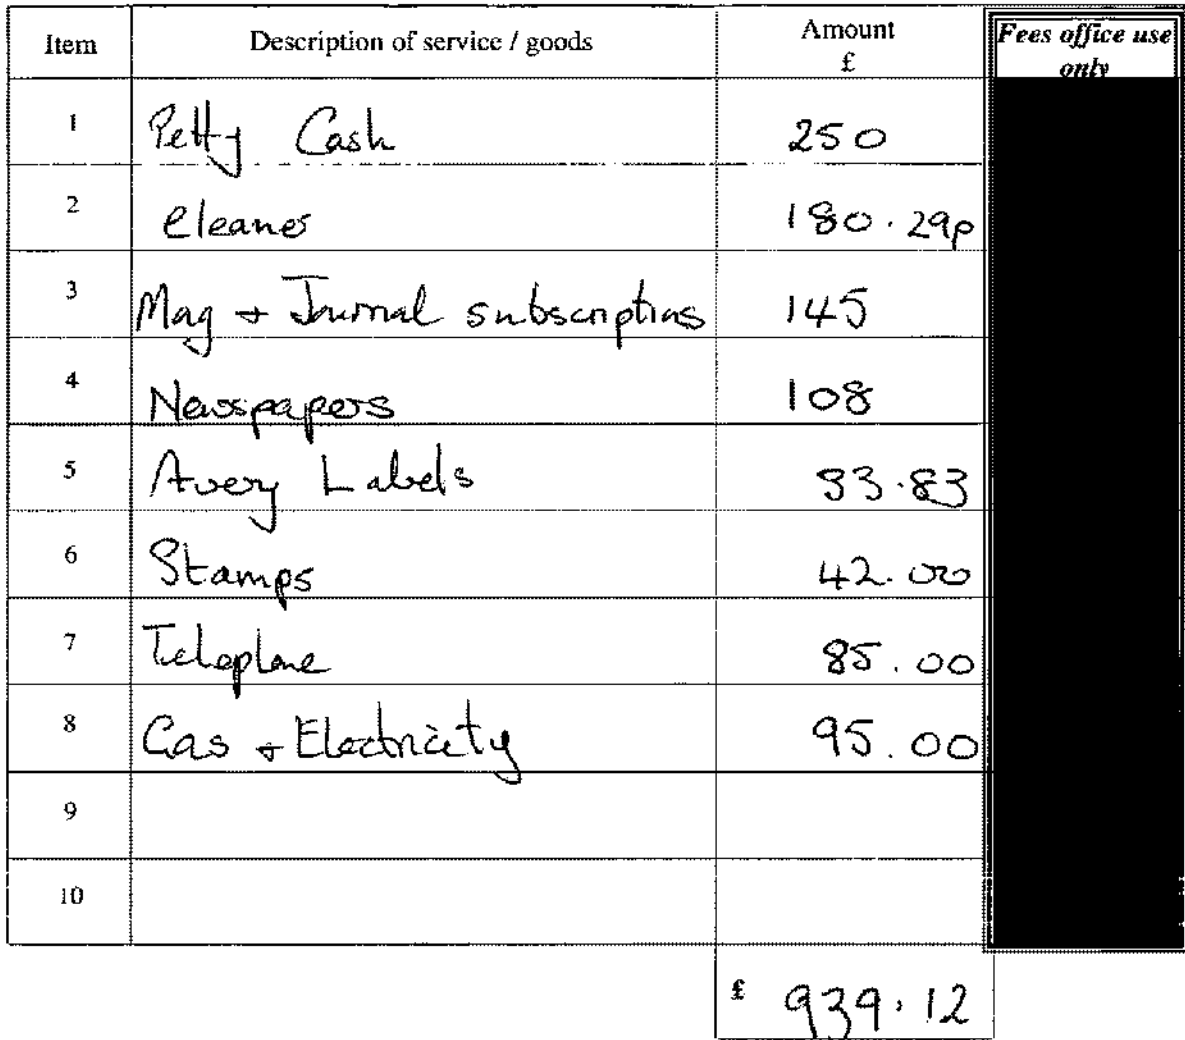 Item Description of service / goods Amount £ Fees office use only
1 Petty Cash 250
2 Cleaner 180.29p
3 Mag + Journal subscriptions 145
4 Newspapers 108
5 Avery Labels 33.83
6 Stamps 42.00
7 Telephone 85.00
8 Gas + Electricity 95.00
9
10
£ 939.12